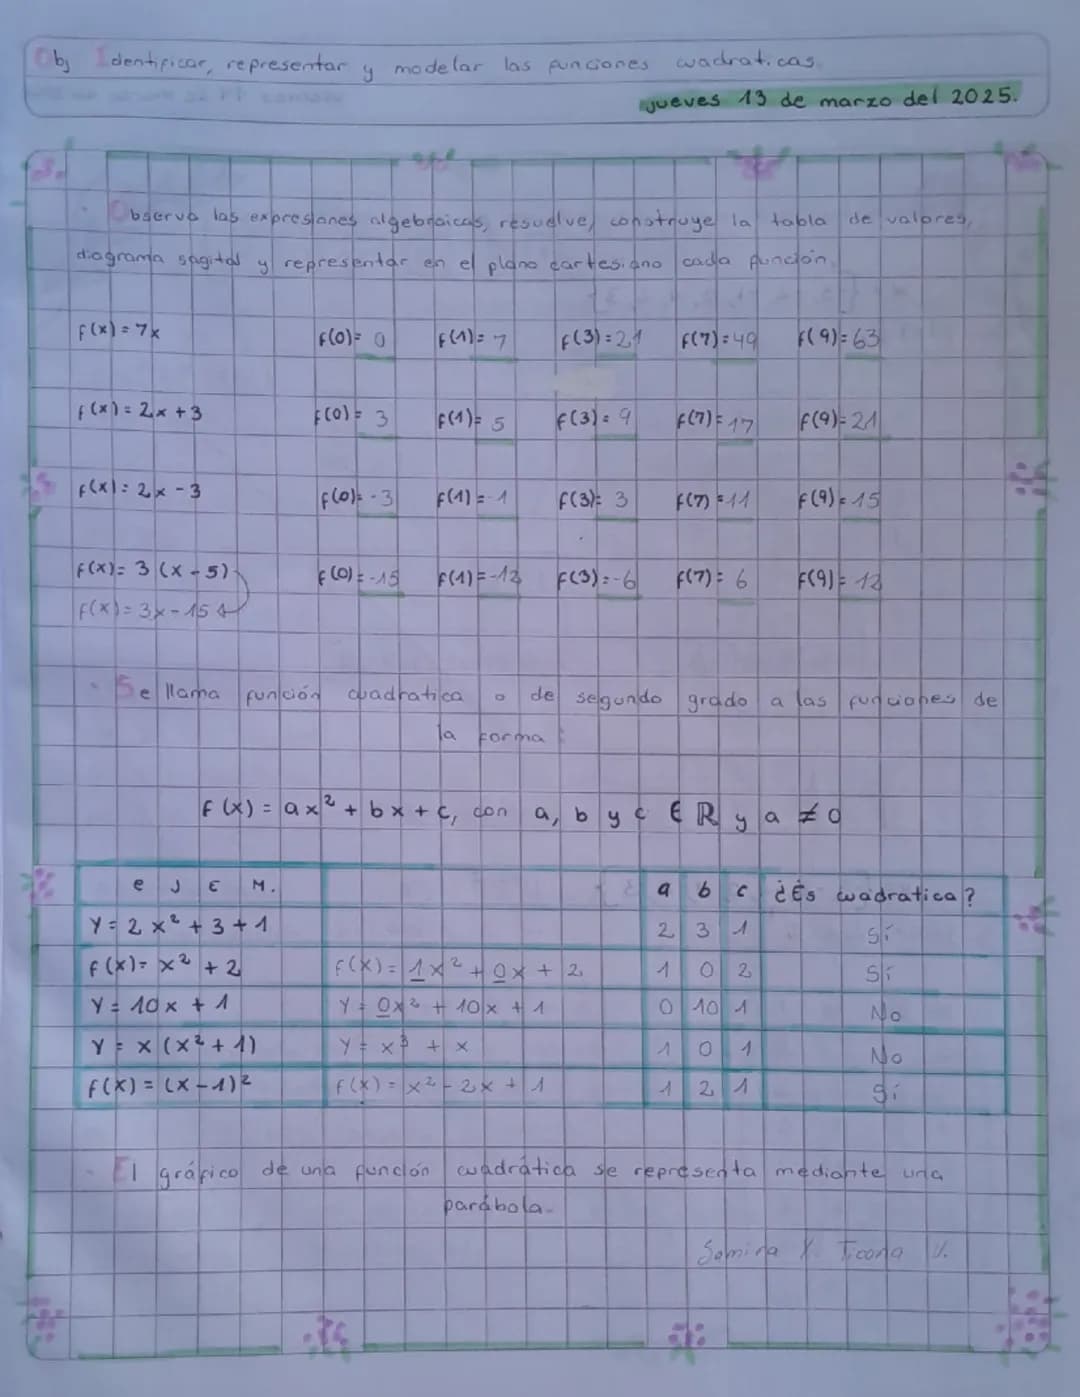 Obj Identificar, representar y modelar las funciones cuadraticas.
jueves 13 de marzo del 2025.
Observa las expresiones algebraicas, resuelve, construye la tabla de valores,
diagrama sagital y representar en el plano cartesiano cada función.
f(x) = 7x f(0)= 0 f(1)= 7 f(3)=21 f(7)=49 f(9)=63
f(x) = 2x + 3 f(0) = 3 f(1)= 5 f(3)= 9 f(7)= 17 f(9)= 21
f(x) = 2x - 3 f(0)= -3 f(1) = -1 f(3)= 3 f(7) = 11 f(9) = 15
f(x)= 3 (x - 5) f(0) = -15 f(1) = -12 f(3) = -6 f(7) = 6 f(9) = 12
f(x) = 3x - 15
Se llama función cuadratica o de segundo grado a las funciones de
la forma :
f(x) = ax² + bx + c, con a, b y c ∈ ℝ y a ≠ 0
e J E M. a b c ¿Es cuadratica?
Y = 2x² + 3 + 1 2 3 1 Sí
f(x)= x² + 2 f(x) = 1x² + 0x + 2 1 0 2 Sí
Y = 10x + 1 Y = 0x² + 10x + 1 0 10 1 No
Y = x (x² + 1) Y = x³ + x 1 0 1 No
f(x) = (x - 1)² f(x) = x² - 2x + 1 1 2 1 Sí
El gráfico de una función cuadrática se representa mediante una
parábola.
Samira Y. Ticona V.